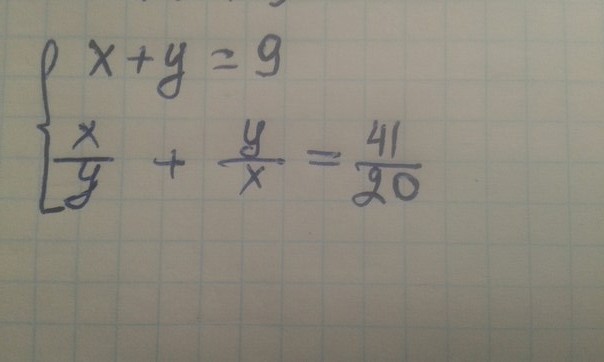 { x + y = 9
x/y + y/x = 41/20